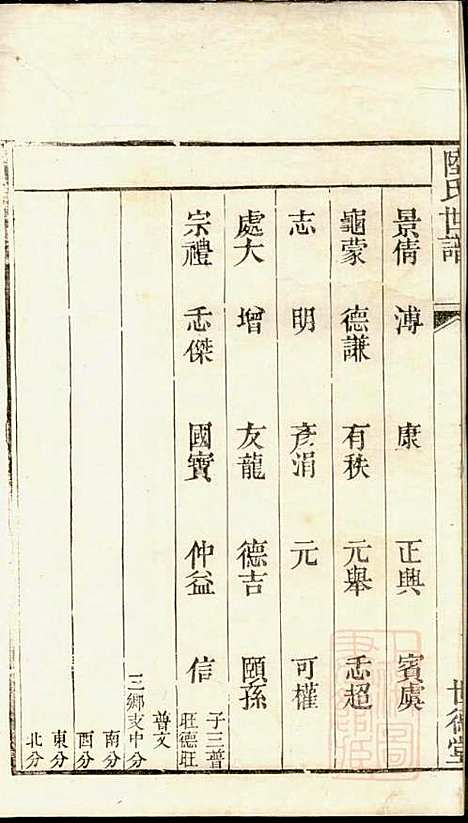 陸氏世譜
世德堂
景倩 溥 康 正興 賓虞
龜蒙 德謙 有秩 元舉 忎超
志 明 彥涓 元 可權
處大 增 友龍 德吉 頤孫
宗禮 忎傑 國寶 仲益 信
子三普
旺德旺
普文
三鄉支中分
南分
酉分
東分
北分